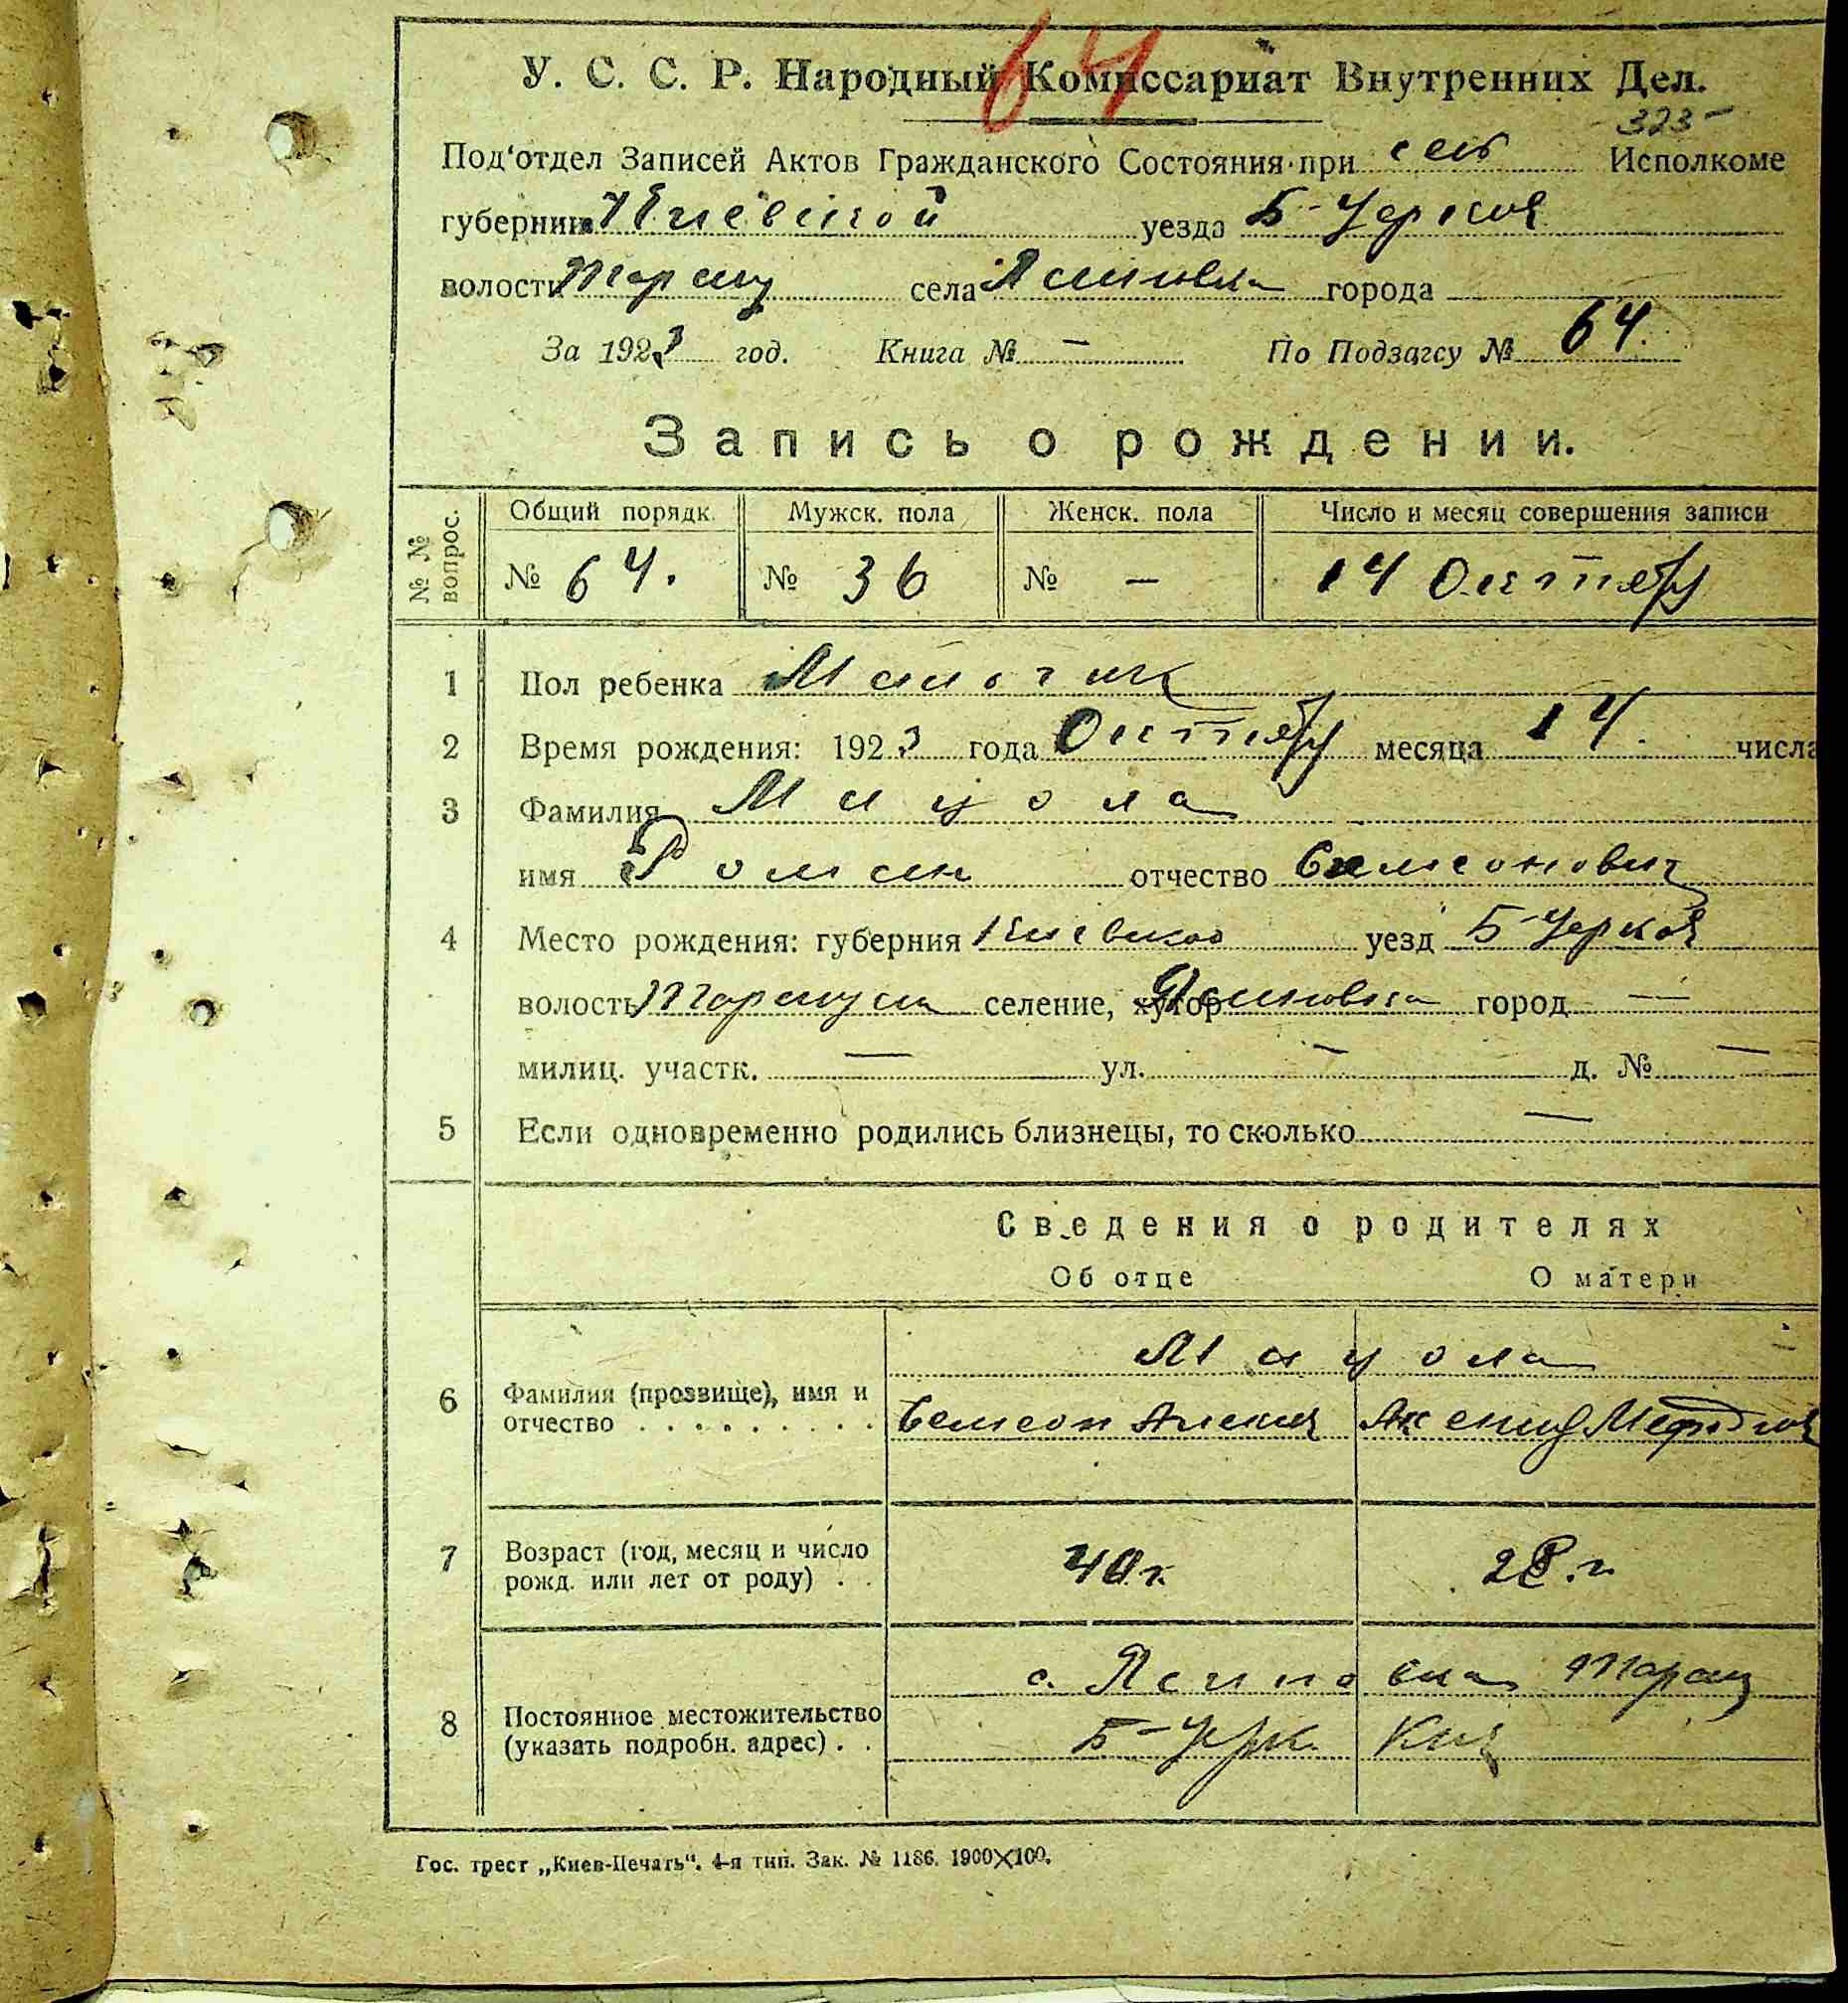 64
У. С. С. Р. Народный Комиссариат Внутренних Дел.
323
Под'отдел Записей Актов Гражданского Состояния при сель Исполкоме
губернии Киевской уезда Б-Церков
волости Таращ села Ясиновка города
За 1923 год. Книга № — По Подзагсу № 64.
Запись о рождении.
№ № вопрос. Общий порядк. Мужск. пола Женск. пола Число и месяц совершения записи
№ 64. № 36 № — 14 Октябр
1 Пол ребенка Мальчик
2 Время рождения: 1923 года Октябр месяца 14. числа
3 Фамилия Мацола
имя Роман отчество Самсонович
4 Место рождения: губерния Киевской уезд Б-Церков
волость Таращ селение, хутор Ясиновка город —
милиц. участк. — ул. — д. № —
5 Если одновременно родились близнецы, то сколько —
Сведения о родителях
Об отце О матери
Мацола
6 Фамилия (прозвище), имя и
отчество . . . . . . . . . Самсон Алексея Аксения Мефодиев
7 Возраст (год, месяц и число
рожд. или лет от роду) . . 40 г. 28. г.
с. Ясиновка Таращ
8 Постоянное местожительство
(указать подробн. адрес) . . Б-Церк. Киев
Гос. трест „Киев-Печать“. 4-я тип. Зак. № 1186. 1900×100.